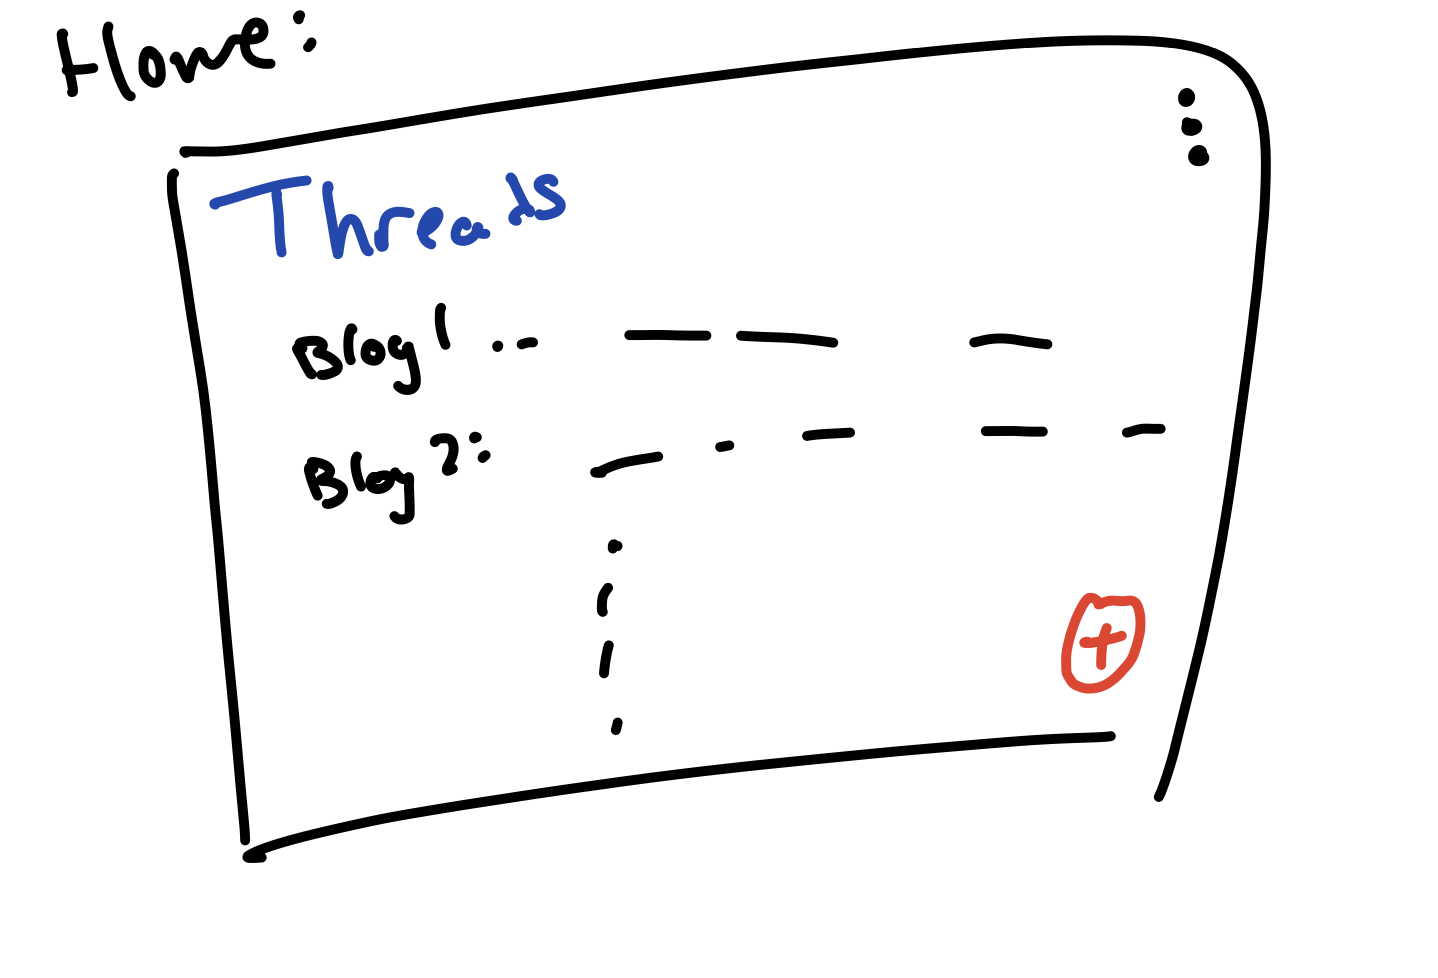 Home:
Threads
Blog 1 ..
Blog 2:
+